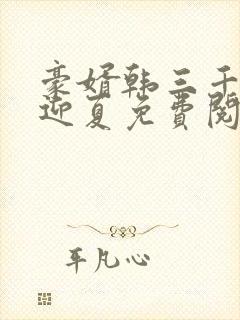 豪婿韩三千
迎夏免费阅
平凡心